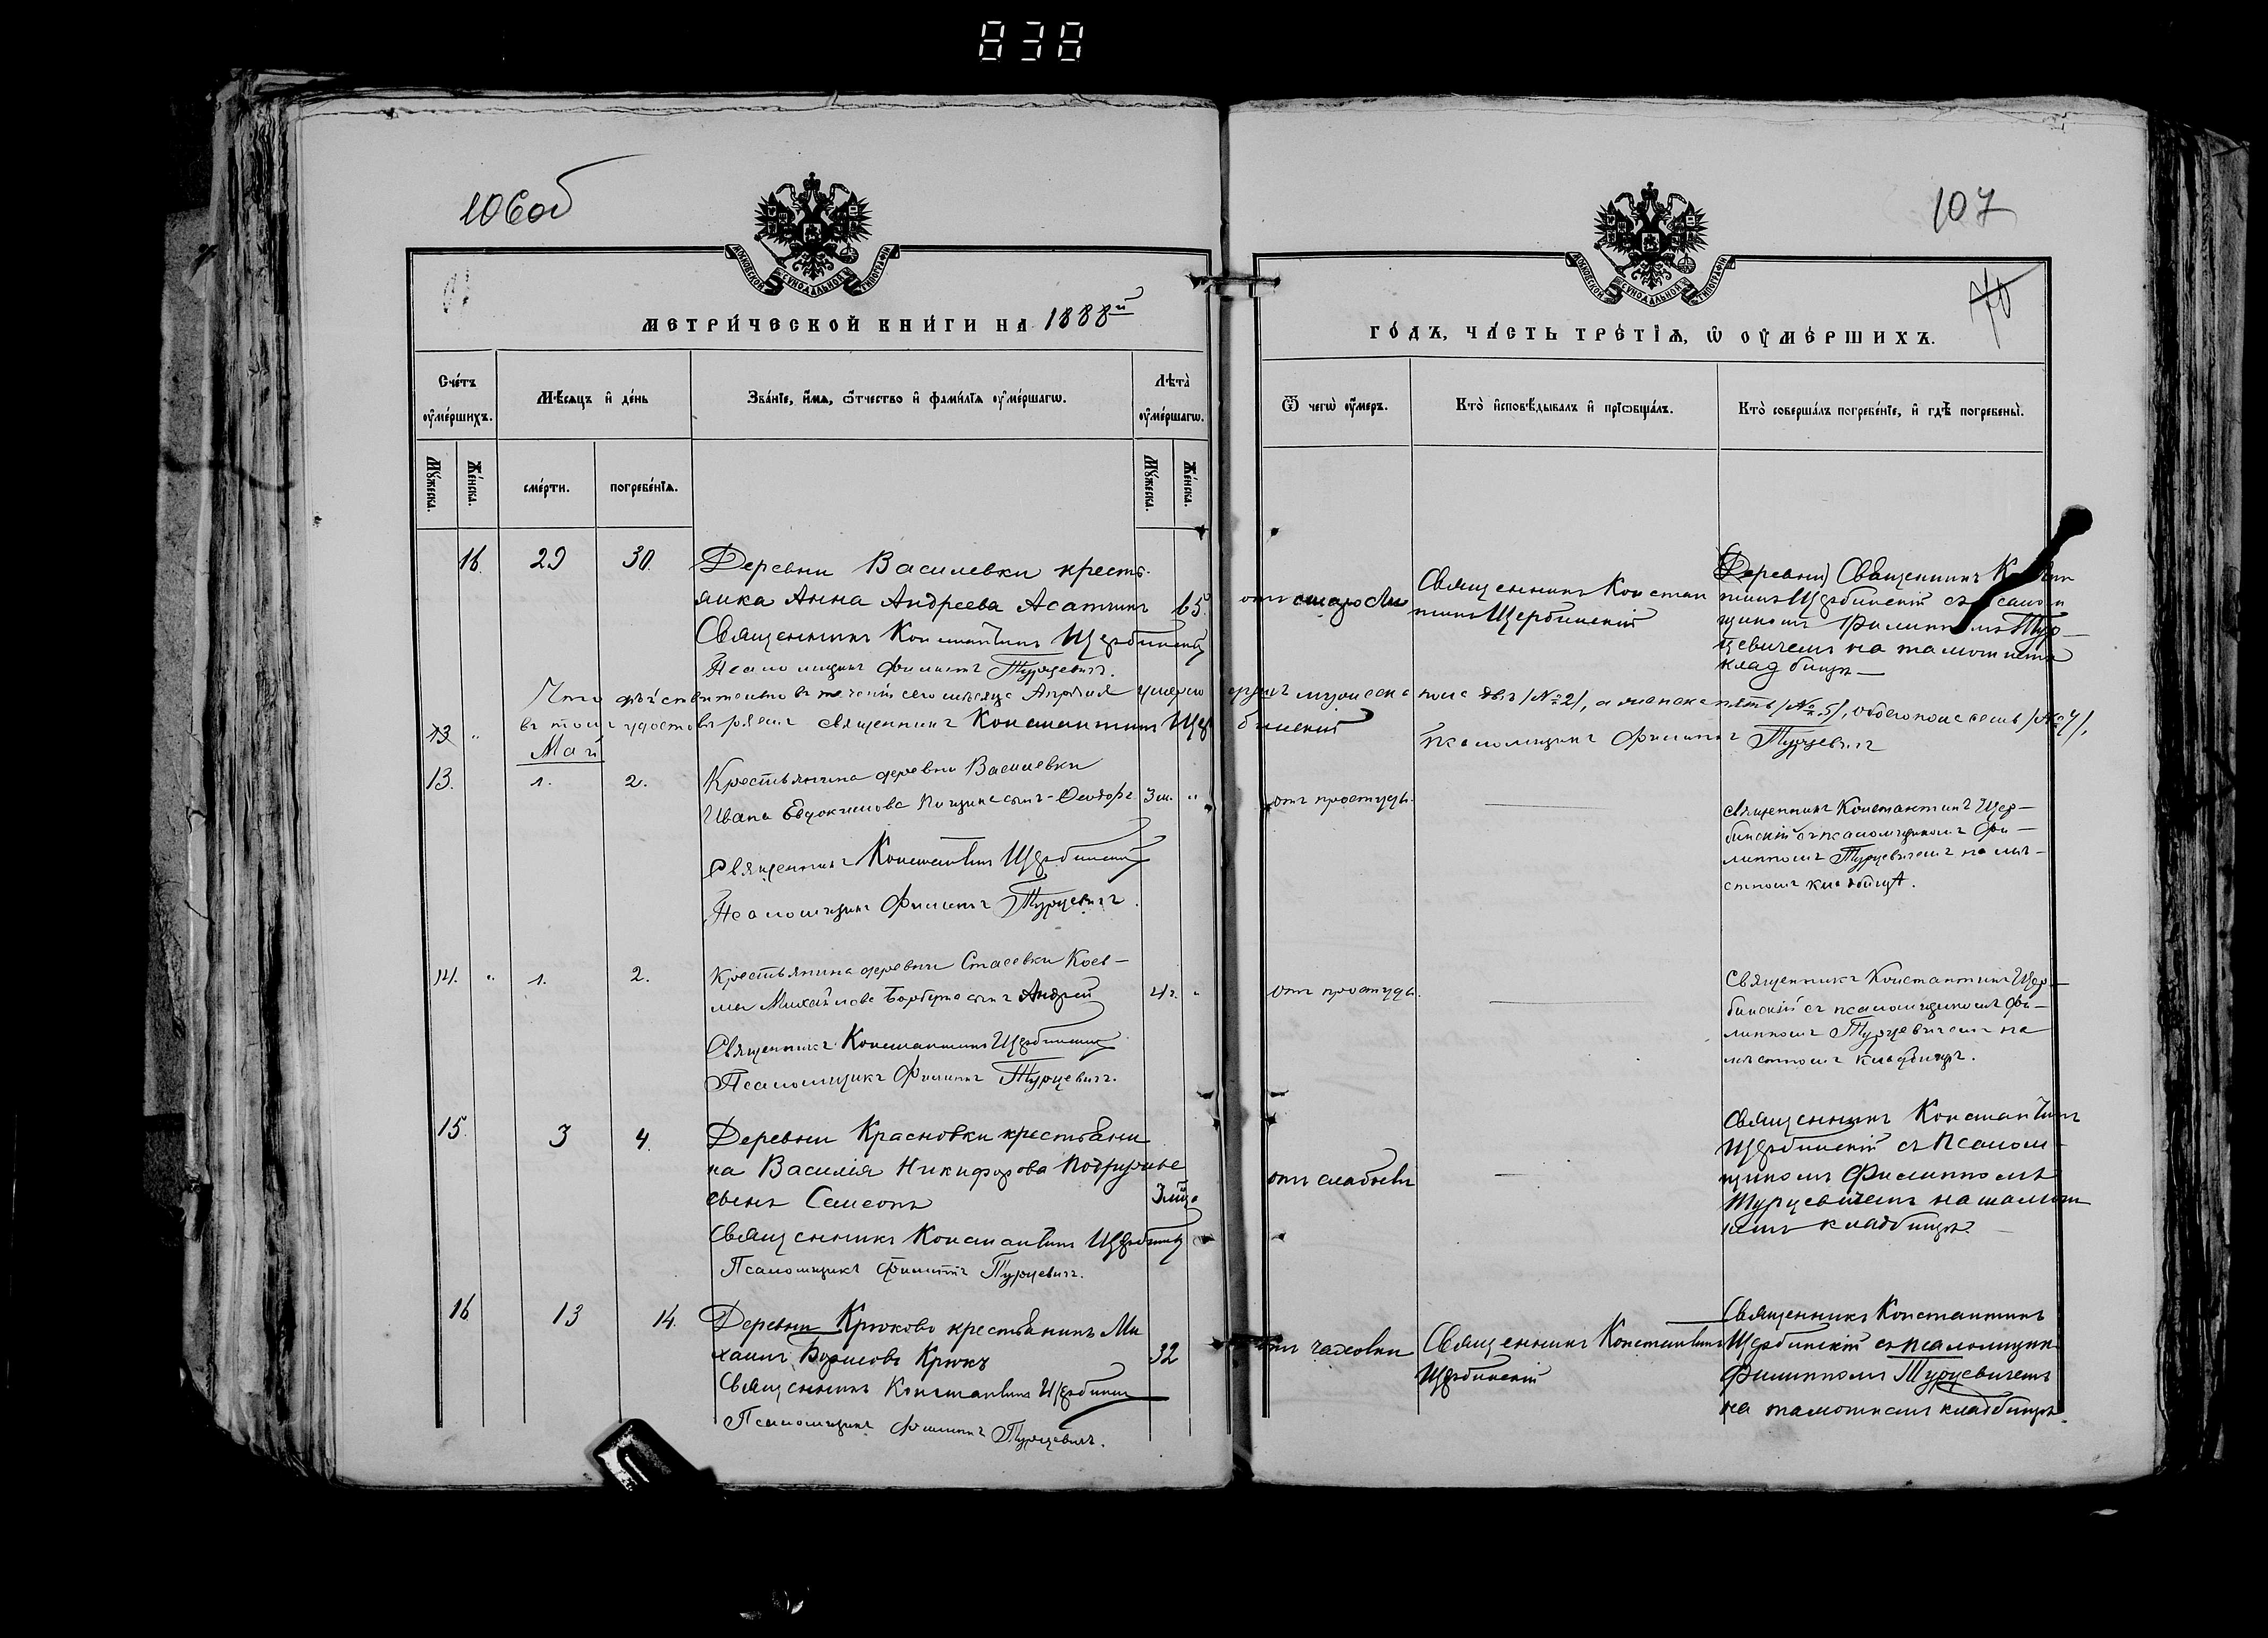 838
106об
107
МОСКОВСКОЙ СѴНОДАЛЬНОЙ ТИПОГРАФІИ
МОСКОВСКОЙ СѴНОДАЛЬНОЙ ТИПОГРАФІИ
70
МЕТРИ́ЧЕСКОЙ КНИ́ГИ НА 1888й
ГО́ДЪ, ЧА́СТЬ ТРЕ́ТІѦ, Ѡ҆ ОУ҆МЕ́РШИХЪ.
Сче́тъ оу҆ме́ршихъ.
Мѣ́сяцъ и҆ де́нь
Зва́нїе, и҆́мѧ, ѻ҆́тчество и҆ фами́лїѧ оу҆ме́ршагѡ.
Лѣта̀ оу҆ме́ршагѡ.
Ѿ чегѡ̀ оу҆́меръ.
Кто̀ и҆сповѣ́дывалъ и҆ прїѡбща́лъ.
Кто̀ соверша́лъ погребе́нїе, и҆ гдѣ̀ погребены̀.
Му́жеска.
Же́нска.
сме́рти.
погребе́нїѧ.
Му́жеска.
Же́нска.
16. 29 30. Деревни Василевки кресть-
янка Анна Андреева 65.
Священникъ Константинъ Щербинскій
Псаломщикъ Филиппъ Турцевичъ.
отъ старости
Священникъ Констан
тинъ Щербинскій
Священникъ
тинъ Щербинскій съ
щикомъ Филиппомъ Тур-
цевичемъ на
кладбищѣ
Что дѣйствительно въ теченіи сего мѣсяца Апрѣля умерло пола два /№2/, а женска пять /№5/, обоего пола семь /№7/,
въ томъ удостовѣряемъ священникъ Константинъ Щербинскій
псаломщикъ Филиппъ Турцевичъ
13 "
Май
13. 1. 2. Крестьянина деревни Василевки
Ивана Евдокимова сынъ Ѳеодоръ 3 м. "
Священникъ Константинъ Щербинскій
Псаломщикъ Филиппъ Турцевичъ.
отъ простуды.
священникъ Константинъ Щер-
бинскій съ псаломщикомъ Фи-
липпомъ Турцевичемъ на мѣ-
стномъ кладбищѣ.
14. " 1. 2. Крестьянина деревни Стасевки Кось-
мы Михайлова сынъ Андрей 4 г. "
Священникъ Константинъ Щербинскій
Псаломщикъ Филиппъ Турцевичъ.
отъ простуды.
Священникъ Константинъ Щер-
бинскій съ псаломщикомъ Фи-
липпомъ Турцевичемъ на
мѣстномъ кладбищѣ.
15. 3 4. Деревни Красновки крестьяни
на Василія Никифорова
сынъ Самсонъ
Священникъ Константинъ Щербинскій
Псаломщикъ Филиппъ Турцевичъ.
отъ слабости
Священникъ Константинъ
Щербинскій съ Псалом-
щикомъ Филиппомъ
Турцевичемъ на
кладбищѣ.
16 13 14. Деревни Крюково крестьянинъ Ми
хаилъ Борисовъ Крюкъ 32
Священникъ Константинъ Щербинскій
Псаломщикъ Филиппъ Турцевичъ.
отъ чахотки
Священникъ Константинъ
Щербинскій
Священникъ Константинъ
Щербинскій съ псаломщик
Филиппомъ Турцевичемъ
на кладбищѣ.